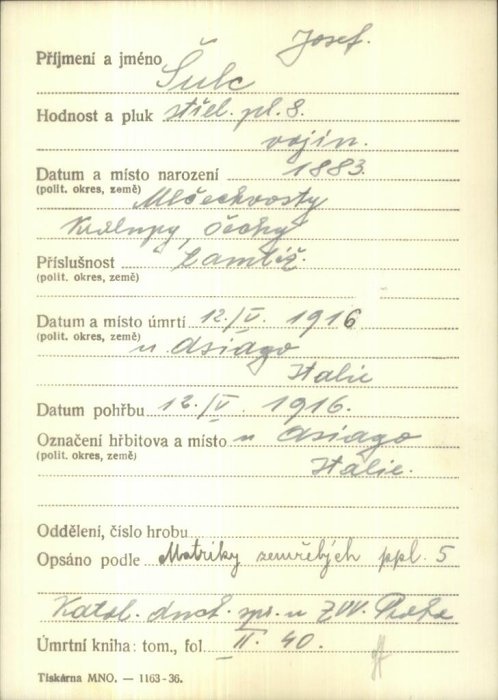 Josef.
Příjmení a jméno Šulc
Hodnost a pluk střel. pl. 8.
vojín.
Datum a místo narození 1883.
(polit. okres, země) Mlčechvosty
Kralupy, Čechy
Příslušnost tamtéž.
(polit. okres, země)
Datum a místo úmrtí 12./V. 1916
(polit. okres, země) u Asiago
Italie
Datum pohřbu 12./V. 1916.
Označení hřbitova a místo u Asiago
(polit. okres, země) Italie.
Oddělení, číslo hrobu
Opsáno podle Matriky zemřelých ppl. 5
Katol. duch. spr. u ZVV. Praha
Úmrtní kniha: tom., fol. II. 40.
Tiskárna MNO. — 1163-36.